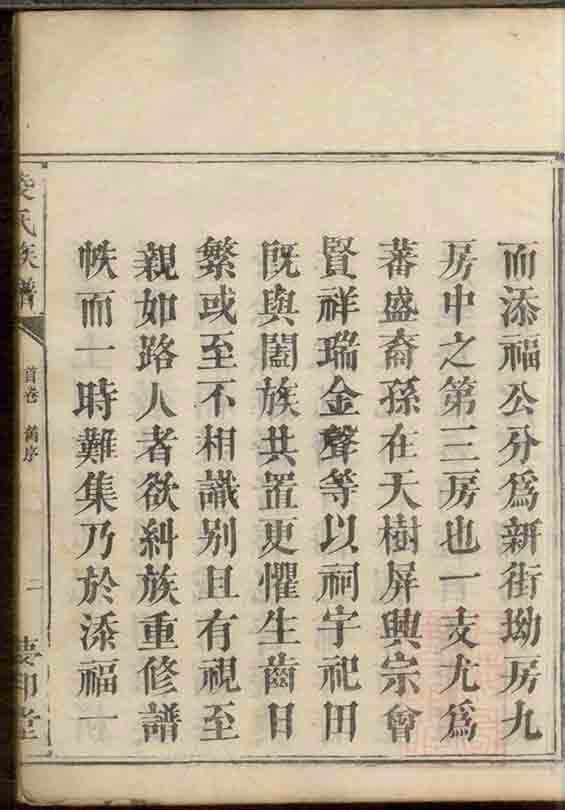 而添福公分爲新街坳房九
房中之第三房也一支尤爲
蕃盛裔孫在天樹屏興宗會
賢祥瑞金聲等以祠宇祀田
既與闔族共置更懼生齒日
繁或至不相識别且有視至
親如路人者欲糾族重修譜
帙而一時難集乃於添福一
氏族譜
首卷 舊序
二